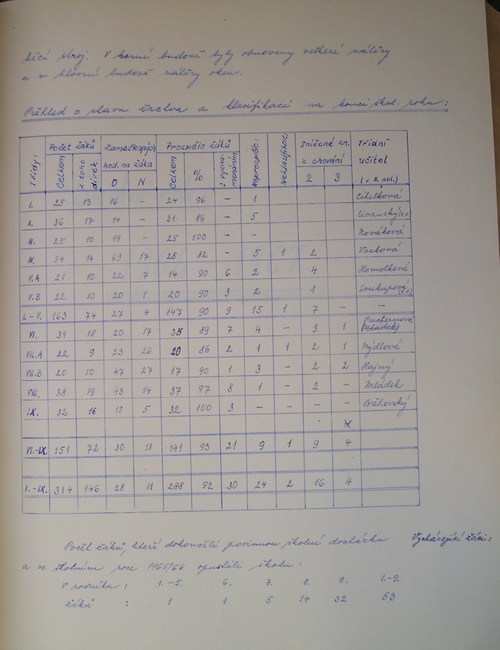 šicí stroj. V horní budově byly obnoveny veškeré nátěry
a v hlavní budově nátěry oken.
Přehled o stavu žactva a klasifikaci na konci škol. roku:
Třídy: Počet žáků Celkem z toho dívek Zameškaných hod. na žáka O N Prospělo žáků Celkem % S vyznamenáním Neprospělo: Neklasifikov. Snížené zn. z chování 2 3 Třídní učitel (v 2. pol.)
I. 25 13 16 - 24 96 - 1 Cihelková
II. 36 17 14 - 31 86 - 5
III. 25 10 19 - 25 100 - - Nováková
IV. 34 14 69 17 28 82 - 5 1 2 Vacková
V.A 21 10 22 7 14 90 6 2 4 Homolková
V.B 22 10 20 1 20 90 3 2 1 Soukupová
I.-V. 163 74 27 4 147 90 9 15 1 7 - -
VI. 39 18 20 17 35 89 7 4 - 3 1
VII.A 22 9 23 26 20 86 2 1 1 2 1 Rýdlová
VII.B 20 10 47 27 17 90 1 3 - 2 2 Hejný
VIII. 38 19 43 14 37 97 8 1 - 2 - Mládek
IX. 32 16 18 5 32 100 3 - - - -
VI.-IX. 151 72 30 18 141 93 21 9 1 9 4
I.-IX. 314 146 28 11 288 92 30 24 2 16 4
Počet žáků, kteří dokončili povinnou školní docházku Vycházející žáci:
a ve školním roce 1965/66 opustili školu:
V ročníku: 1.-5. 6. 7. 8. 9. 1.-9.
žáků : 1 1 5 14 32 53